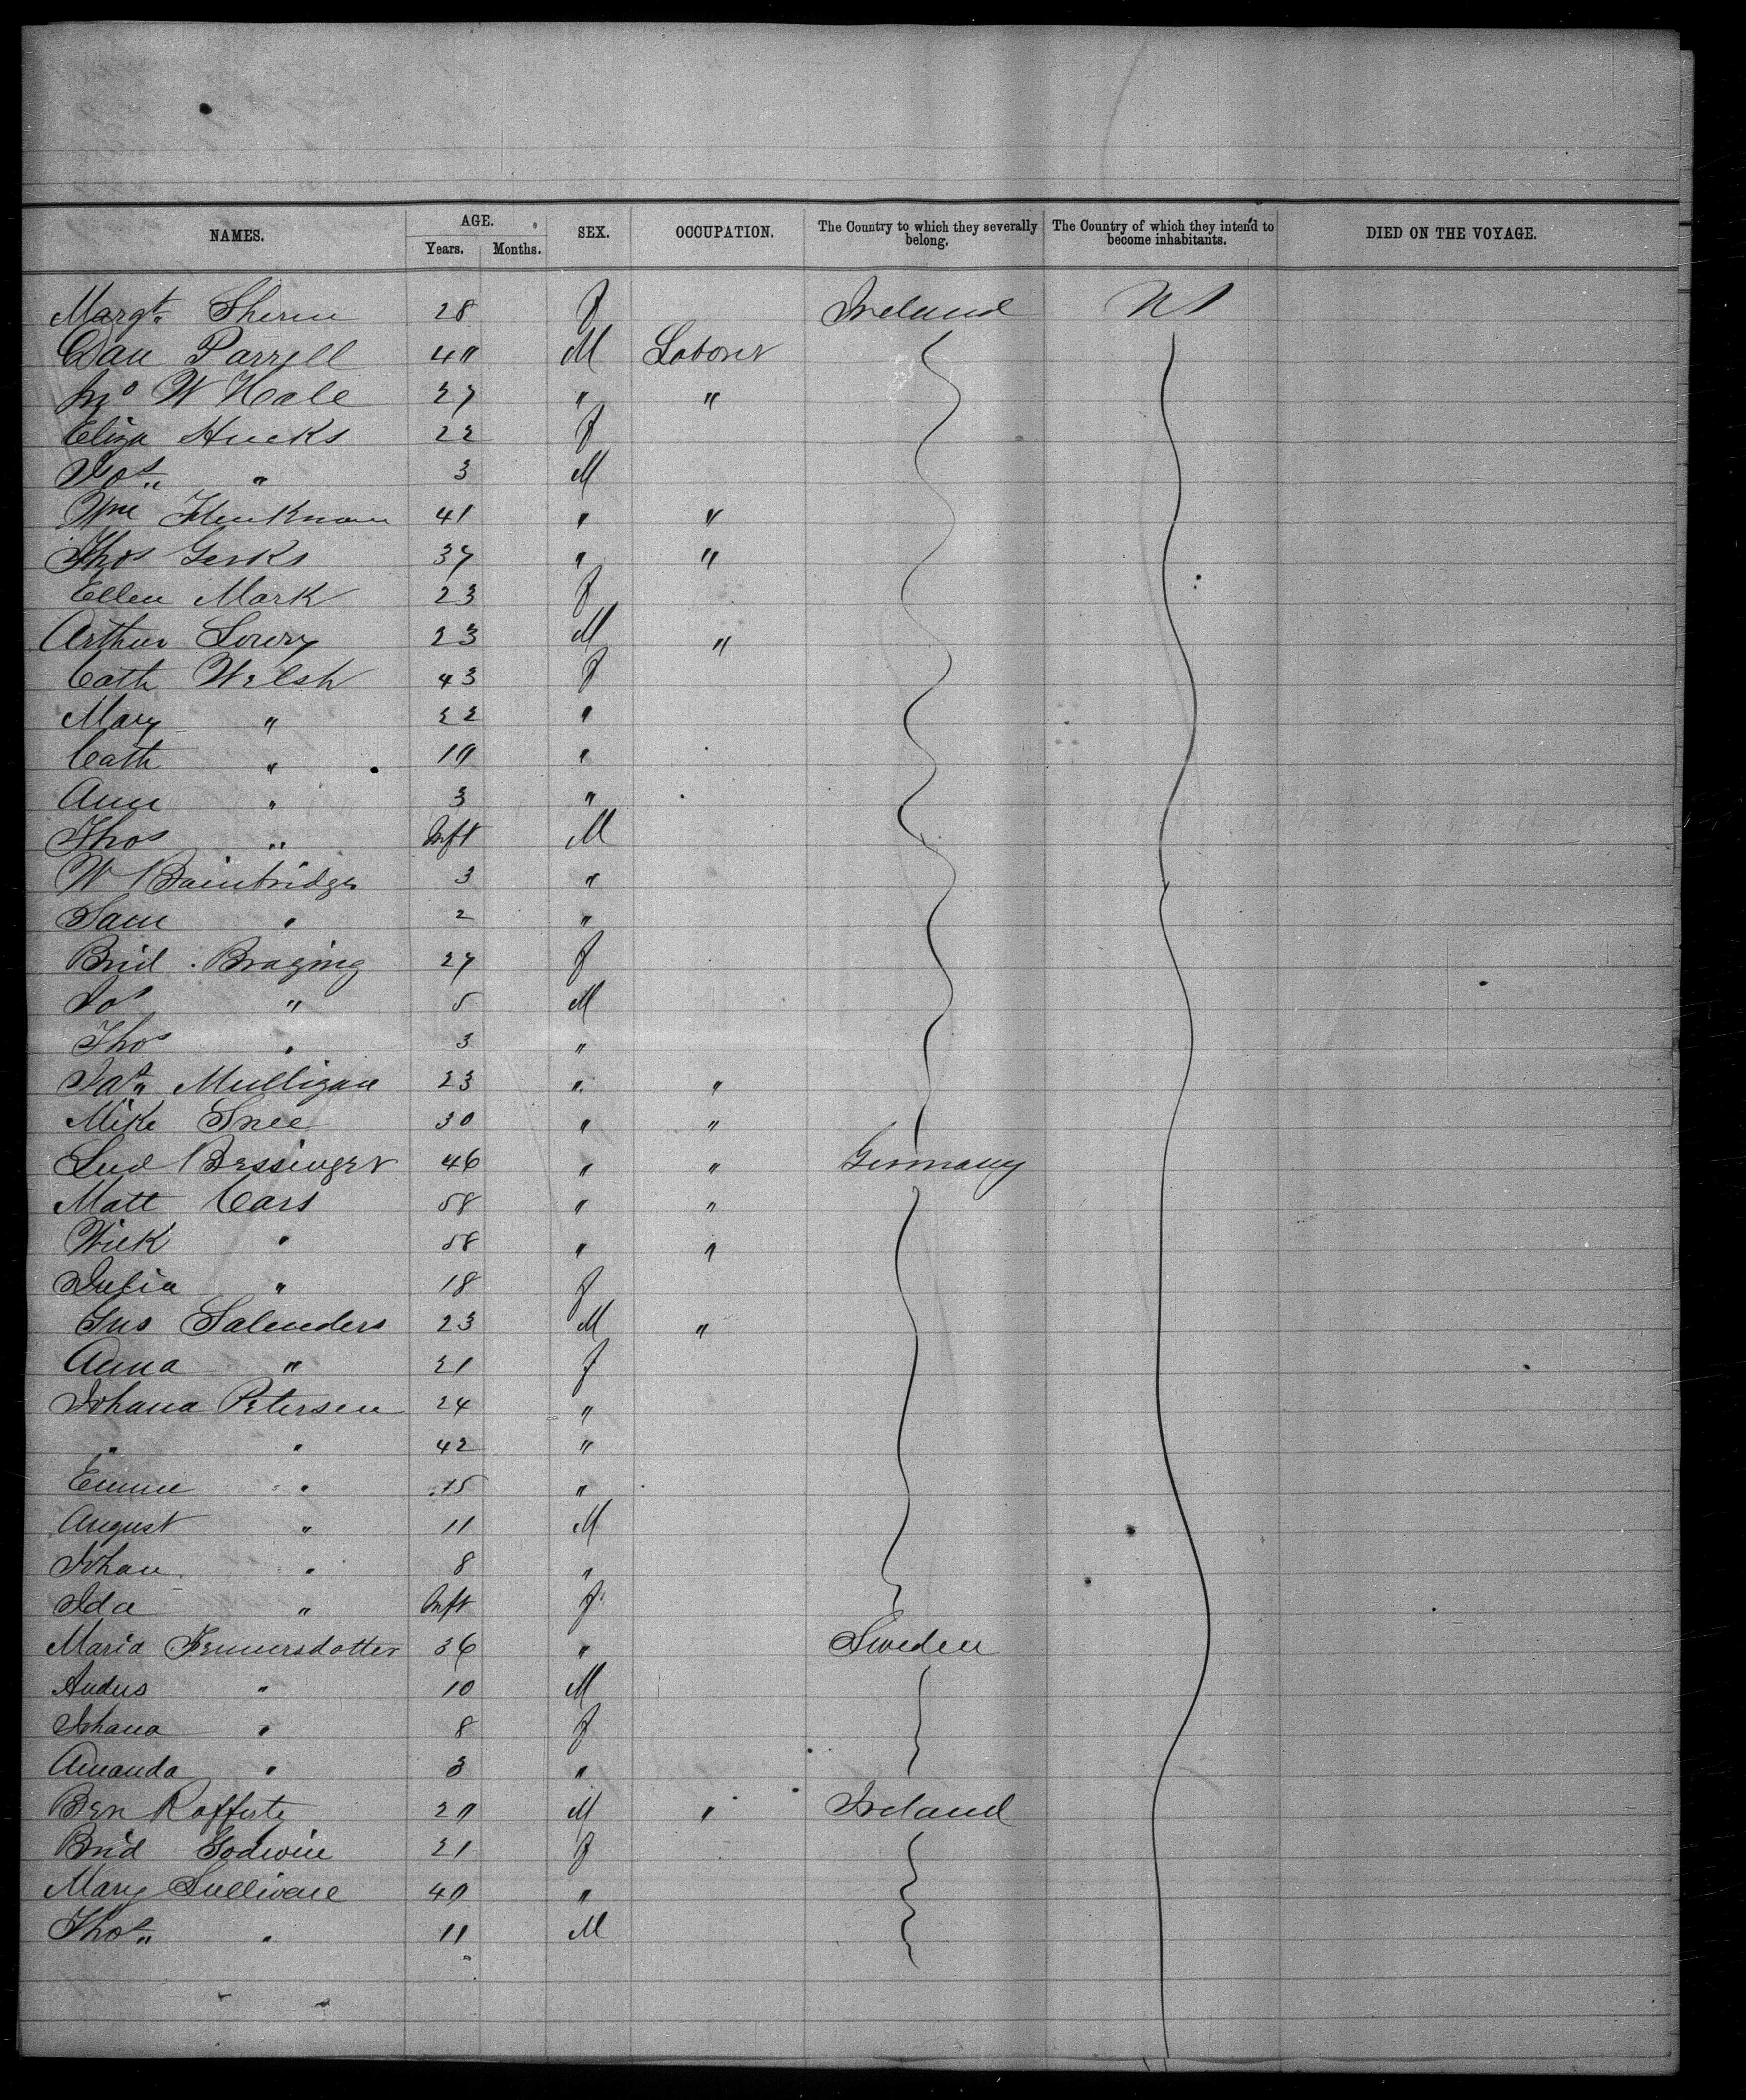 NAMES. AGE. Years. Months. SEX. OCCUPATION. The Country to which they severally belong. The Country of which they intend to become inhabitants. DIED ON THE VOYAGE.
Margt. 28 f Ireland US
Dan Parrell 40 M Laborer
Jno W Hale 27 " "
Eliza Hucks 22 f
Jos " 3 M
Wm 41 " "
Thos Gerks 37 " "
Ellen Mark 23 f
Arthur Lowry 23 M "
Cath Welsh 43 f
Mary " 22 "
Cath " 10 "
Ann " 3 "
Thos " Inft M
W Bainbridge 3 "
Sam " 2 "
Brid Braging 27 f
Jos " 5 M
Thos " 3 "
Pat Mulligan 23 " "
Mike Snee 30 " "
Lud Bessinger 46 " " Germany
Matt Cars 58 " "
Wick " 58 " "
Julia " 18 f
Gus Salenders 23 M "
Anna " 21 f
Johana Petersen 24 "
" " 42 "
Emme " 15 "
August " 11 M
Johan " 8 "
Ida " Inft f
Maria 36 " Sweden
Andus " 10 M
Johana " 8 f
Amanda " 3 "
Ben Rafferty 20 M " Ireland
Brid Godwin 21 f
Mary Sullivan 40 "
Thos " 11 M